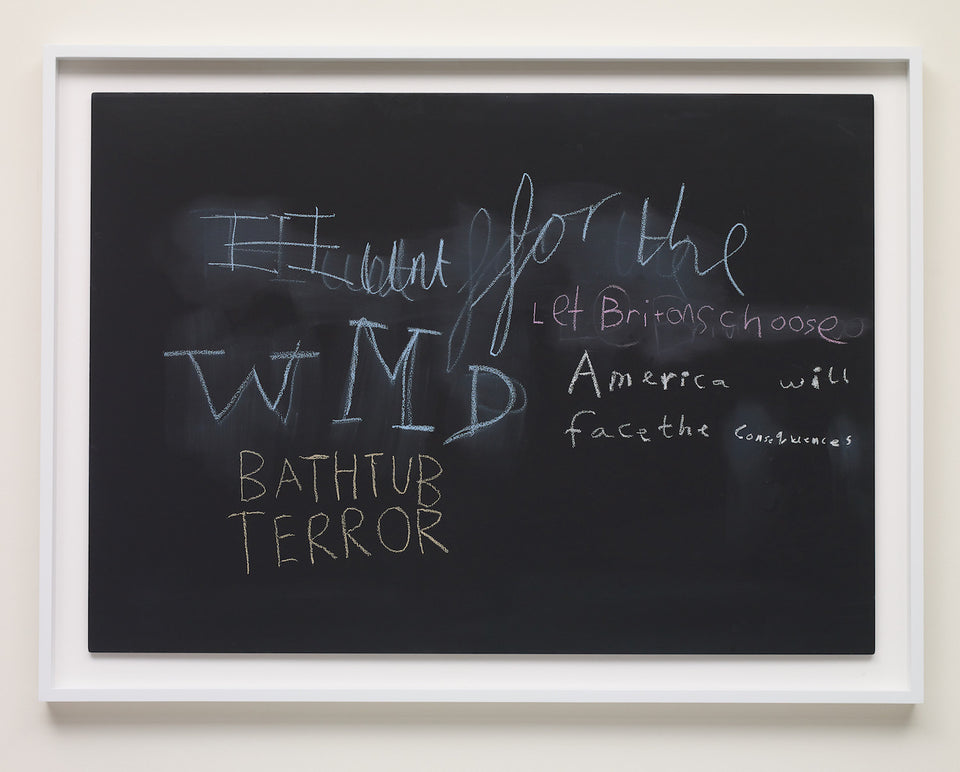 Hunt for the
WMD
BATHTUB
TERROR
Let Britons choose
America will
face the consequences